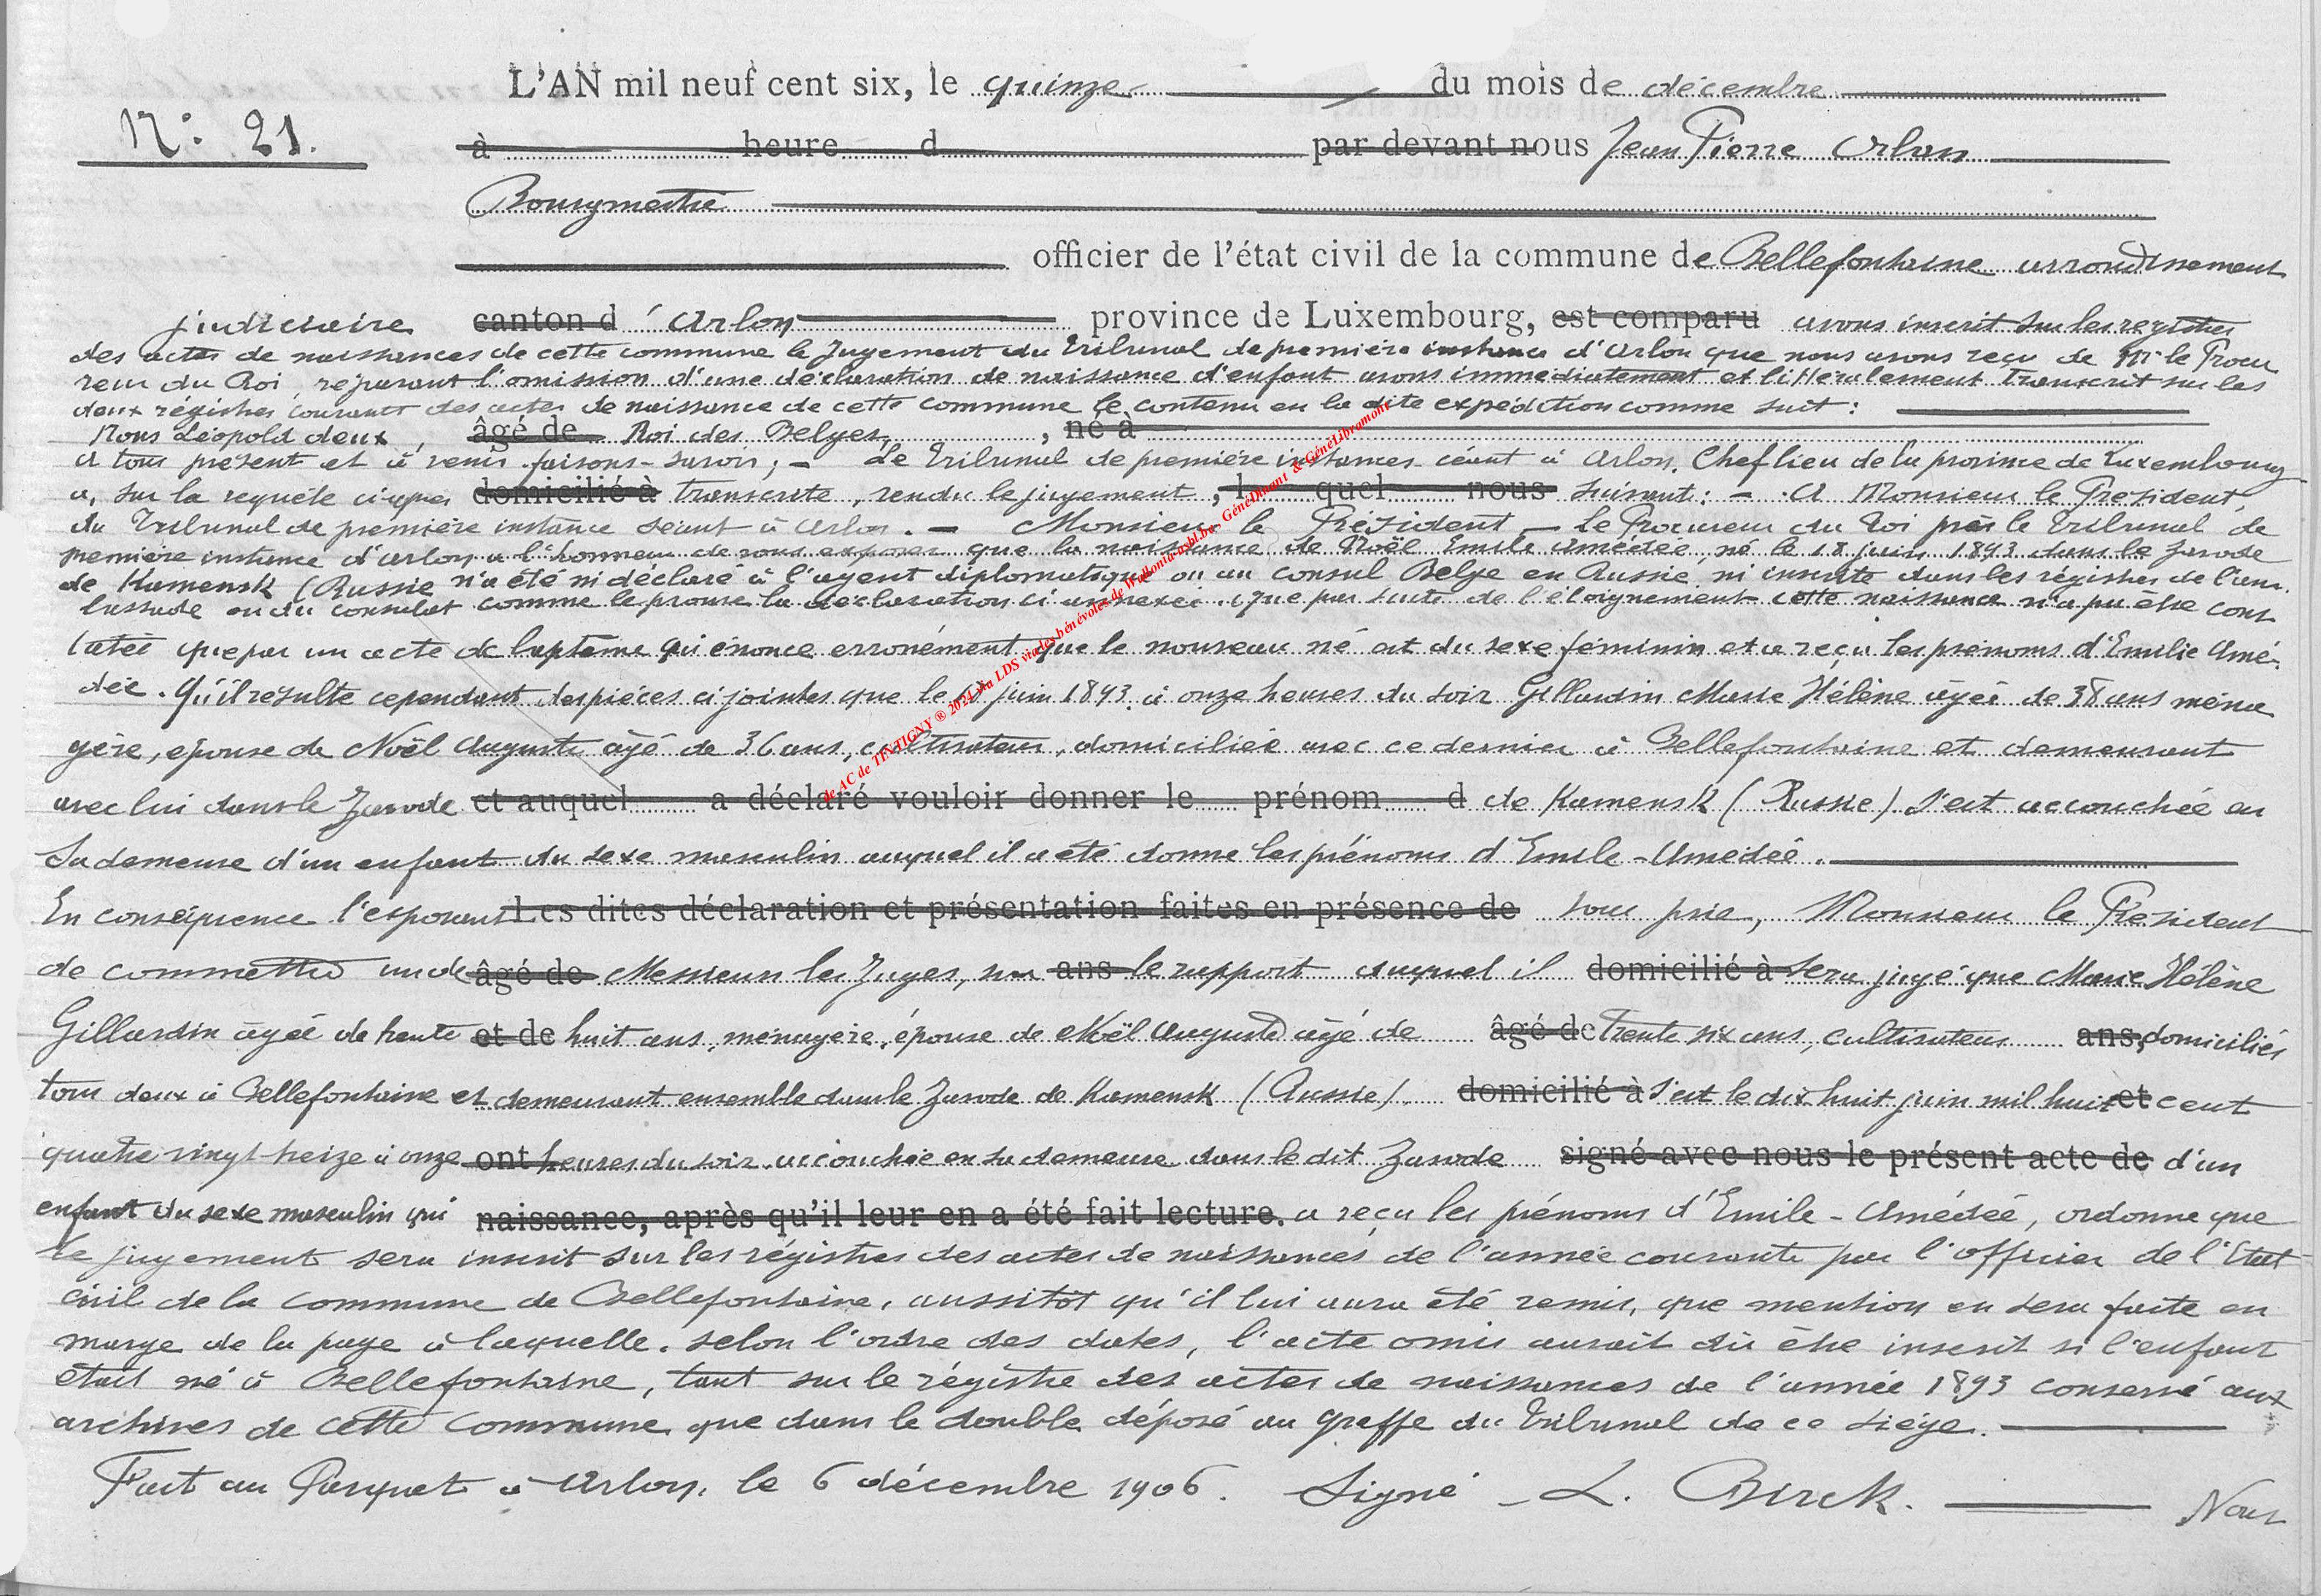 L'AN mil neuf cent six, le quinze du mois de décembre
N: 21.
à heure d par devant nous Jean Pierre Arlon
Bourgmestre
officier de l'état civil de la commune de Bellefontaine arrondissement
judiciaire canton d'Arlon province de Luxembourg, est comparu avons inscrit sur les registres
des actes de naissances de cette commune le Jugement du Tribunal de première instance d'Arlon que nous avons reçu de Mr le Procu
reur du Roi, réparant l'omission d'une déclaration de naissance d'enfant avons immédiatement et littéralement transcrit sur les
deux régistres courants des actes de naissance de cette commune le contenu en la dite expédition comme suit :
Nous Léopold deux, âgé de Roi des Belges, , né à
A tous présent et à venir faisons-savoir ; - Le Tribunal de première instances séant à Arlon. Chef lieu de la province de Luxembourg
a, sur la requête ci après domicilié à transcrite, rendu le jugement, l quel nous suivant : - A Monsieur le Président,
du Tribunal de première instance séant à Arlon. - Monsieur le Président - Le Procureur du Roi près le Tribunal de
première instance d'Arlon a l'honneur de vous exposer que la naissance de Noël Emile Amédée, né le 18 juin 1893 dans le Zavode
de Kamensk (Russie n'a été ni déclaré à l'agent diplomatique ou au consul Belge en Russie, ni inscrite dans les régistres de l'am
bassade ou du consulat comme le prouve la déclaration ci annexée. Que par suite de l'éloignement cette naissance n'a pu être cons
tatée que par un acte de baptême qui énonce erronément que le nouveau né est du sexe féminin et a reçu les prénoms d'Emilie Amé
dée. Qu'il résulte cependant des pièces ci jointes que le juin 1893 à onze heures du soir Gillardin Marie Hélène âgée de 38 ans ména
gère, épouse de Noël Auguste âgé de 36 ans, cultivateur, domiciliée avec ce dernier à Bellefontaine et demeurant
avec lui dans le Zavode et auquel a déclaré vouloir donner le prénom d de Kamensk (Russie) s'est accouchée en
sa demeure d'un enfant du sexe masculin auquel il a été donné les prénoms d'Emile-Amédée.
En conséquence l'exposant Les dites déclaration et présentation faites en présence de vous prie, Monsieur le Président
de commettre un de âgé de Messieurs les Juges, sur ans le rapport duquel il domicilié à sera jugé que Marie Hélène
Gillardin âgée de trente et de huit ans, ménagère, épouse de Noël Auguste âgé de âgé de trente six ans, cultivateur ans, domiciliés
tous deux à Bellefontaine et demeurant ensemble dans le Zavode de Kamensk (Russie) domicilié à s'est le dix huit juin mil huit et cent
quatre vingt treize à onze ont heures du soir accouchée en sa demeure dans le dit Zavode signé avec nous le présent acte de d'un
enfant du sexe masculin qui naissance, après qu'il leur en a été fait lecture. a reçu les prénoms d'Emile-Amédée, ordonne que
le jugement sera inscrit sur les régistres des actes de naissances de l'année courante par l'officier de l'Etat
civil de la commune de Bellefontaine, aussitôt qu'il lui aura été remis, que mention en sera faite en
marge de la page à laquelle, selon l'ordre des dates, l'acte omis aurait dû être inscrit si l'enfant
était né à Bellefontaine, tant sur le régistre des actes de naissances de l'année 1893 conservé aux
archives de cette commune que dans le double déposé au greffe du Tribunal de ce siège.
Fait au Parquet à Arlon, le 6 décembre 1906. Signé - L. Birck. Nous
de AC de TINTIGNY ® 2024 via LDS via des bénévoles de Wallonia-asbl.be - GénéDinant & GénéLibramont